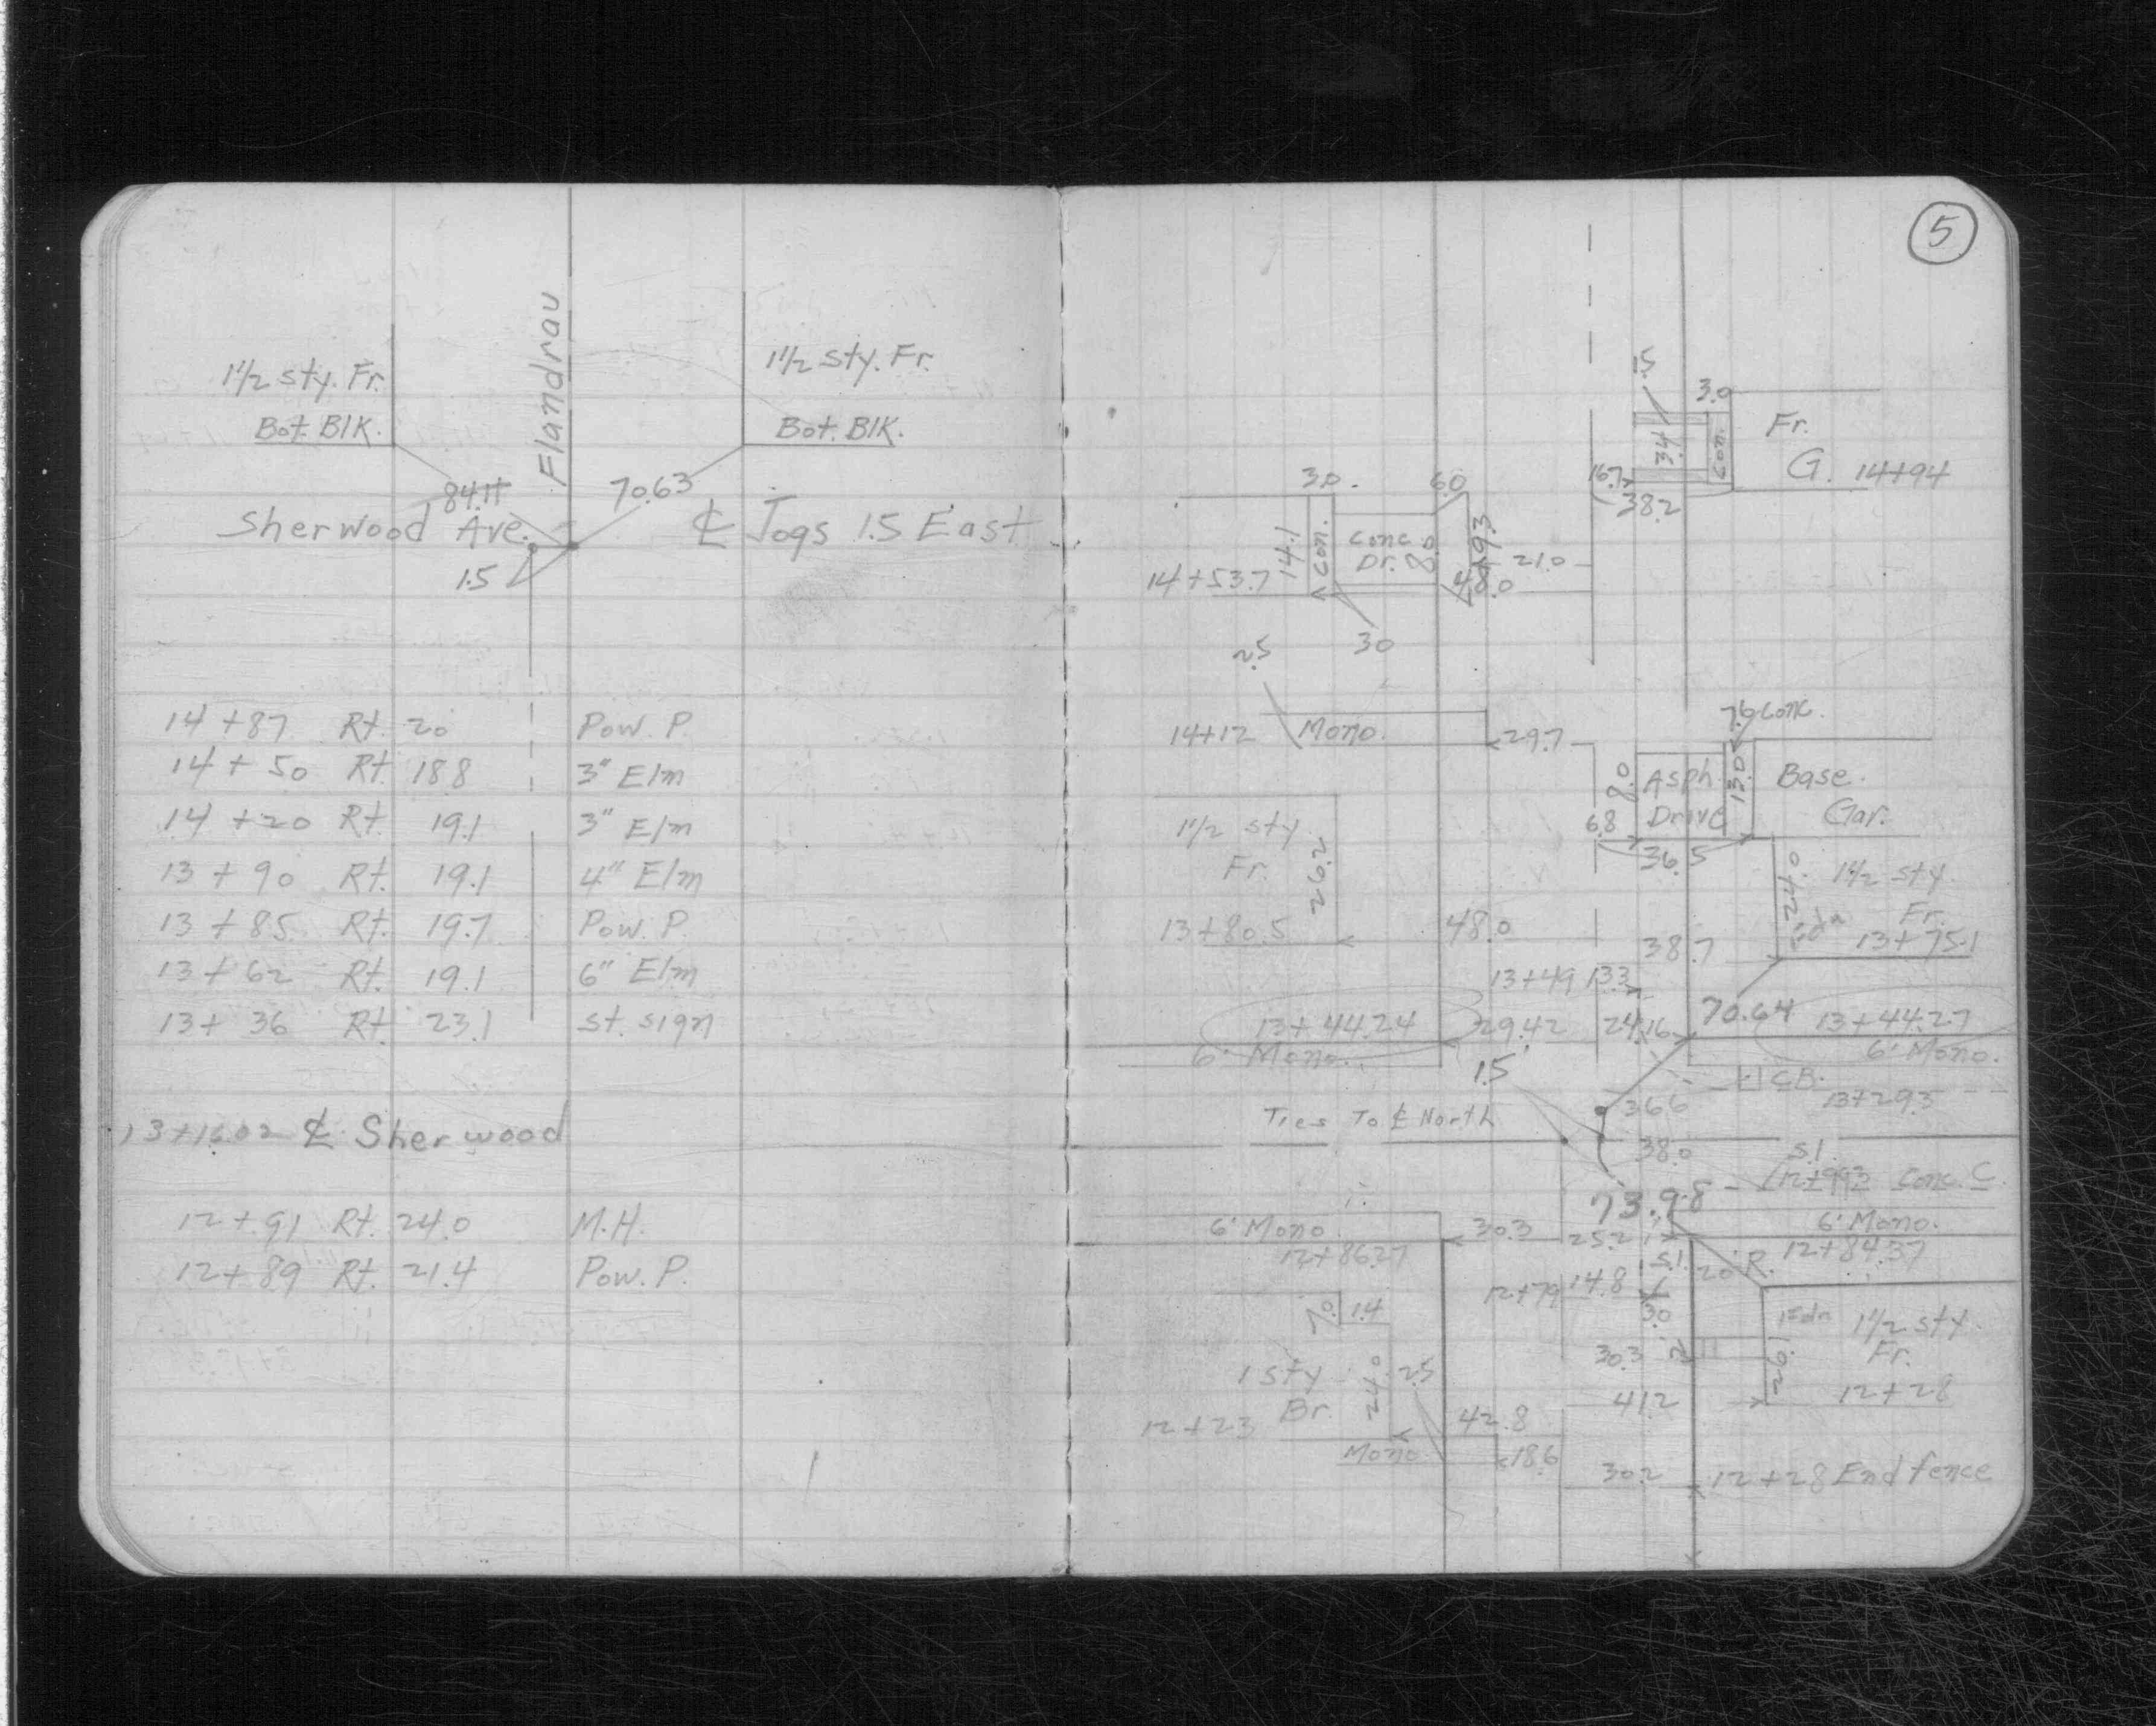 5
1½ sty. Fr.
Bot. Blk.
Flandrau
1½ sty. Fr.
Bot. Blk.
84.11
70.63
Sherwood Ave.
℄ Jogs 1.5 East
1.5
14+87 Rt. 20 Pow. P.
14+50 Rt. 18.8 3" Elm
14+20 Rt. 19.1 3" Elm
13+90 Rt. 19.1 4" Elm
13+85 Rt. 19.7 Pow. P.
13+62 Rt. 19.1 6" Elm
13+36 Rt. 23.1 St. sign
13+16.02 ℄ Sherwood
12+91 Rt. 24.0 M.H.
12+89 Rt. 21.4 Pow. P.
1.5
3.0
Fr.
G. 14+94
3.4
Con.
16.7
38.2
3.0
6.0
14.1
Con.
Conc.
Dr. 8.0
9.3
21.0
14+53.7
30
2.5
14+12
Mono.
29.7
7.6 Conc.
8.0
Asph.
Drive
13.0
Base.
Gar.
6.8
36.5
1½ sty
Fr.
26.2
13+80.5
48.0
24.0
1½ sty.
Fr.
Fdn
13+75.1
38.7
13+49
13.3
70.64
13+44.24
29.42
24.16
13+44.27
6' Mono.
6' Mono.
1.5
C.B.
13+29.5
36.6
Ties To ℄ North
38.0
S.I.
12+99.3 Conc. C.
73.98
6' Mono
12+86.27
30.3
25.2
6' Mono.
12+84.37
S.I.
20' R.
12+79
14.8
3.0
7.0
1.4
1 sty
Br.
24.0
2.5
12+23
Mono.
42.8
18.6
30.3
41.2
Fdn
1½ sty.
Fr.
26.1
12+28
30.2
12+28 End fence